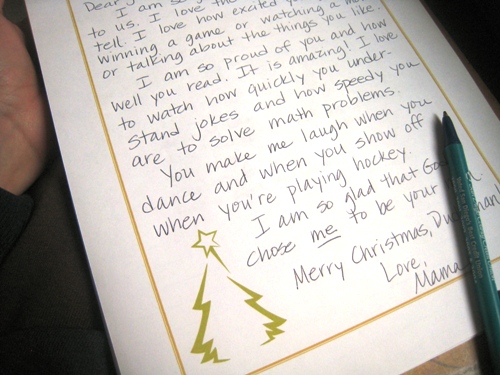 Dear
I am so
to us. I love the
tell. I love how excited you
winning a game or watching a mo
or talking about the things you like.
I am so proud of you and how
well you read. It is amazing! I love
to watch how quickly you under-
stand jokes and how speedy you
are to solve math problems.
You make me laugh when you
dance and when you show off
when you're playing hockey.
I am so glad that Go
chose me to be your
Merry Christmas,
Love,
Mama